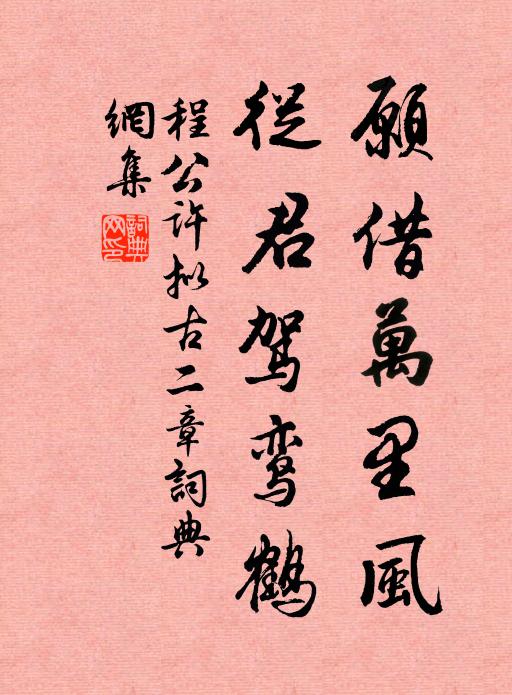 願借萬里風
從君駕鸾鶴
程公許拟古二章詞典
網集
詞典網印